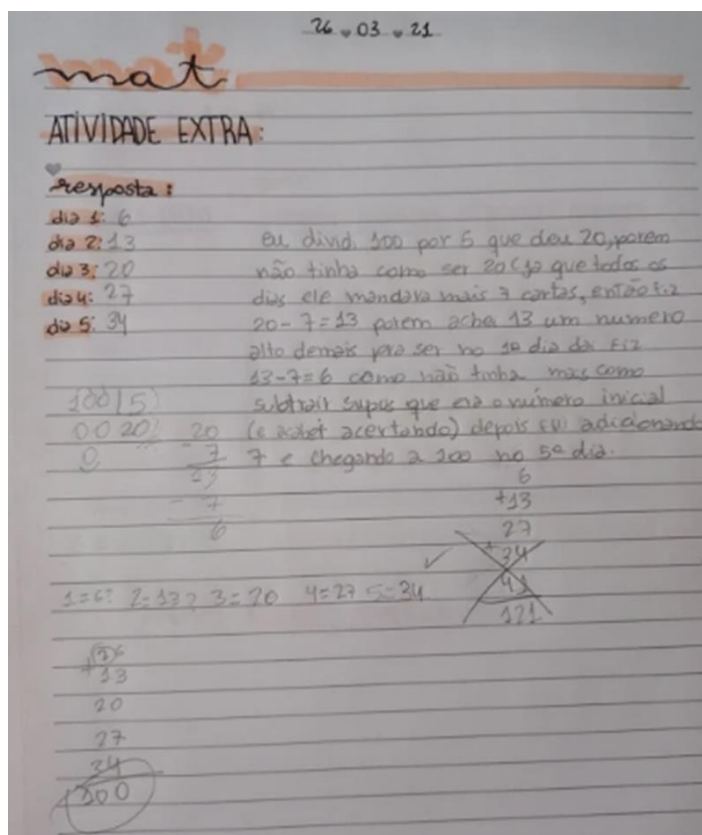 26 ♥ 03 ♥ 21
mat
ATIVIDADE EXTRA:
resposta:
dia 1: 6
dia 2: 13
dia 3: 20
dia 4: 27
dia 5: 34
eu dividi 100 por 5 que deu 20, porem
não tinha como ser 20 (ja que todos os
dias ele mandava mais 7 cartas, então fiz
20-7=13 porem achei 13 um numero
alto demais pra ser no 1º dia daí fiz
13-7=6 como não tinha mas como
subtrair supus que era o número inicial
(e acabei acertando) depois fui adicionando
7 e chegando a 100 no 5º dia.
100 | 5
00 20
0
20
- 7
13
- 7
6
6
+13
27
+34
41
121
1=6? 2=13? 3=20 4=27 5=34 ✓
6
+13
20
27
34
100